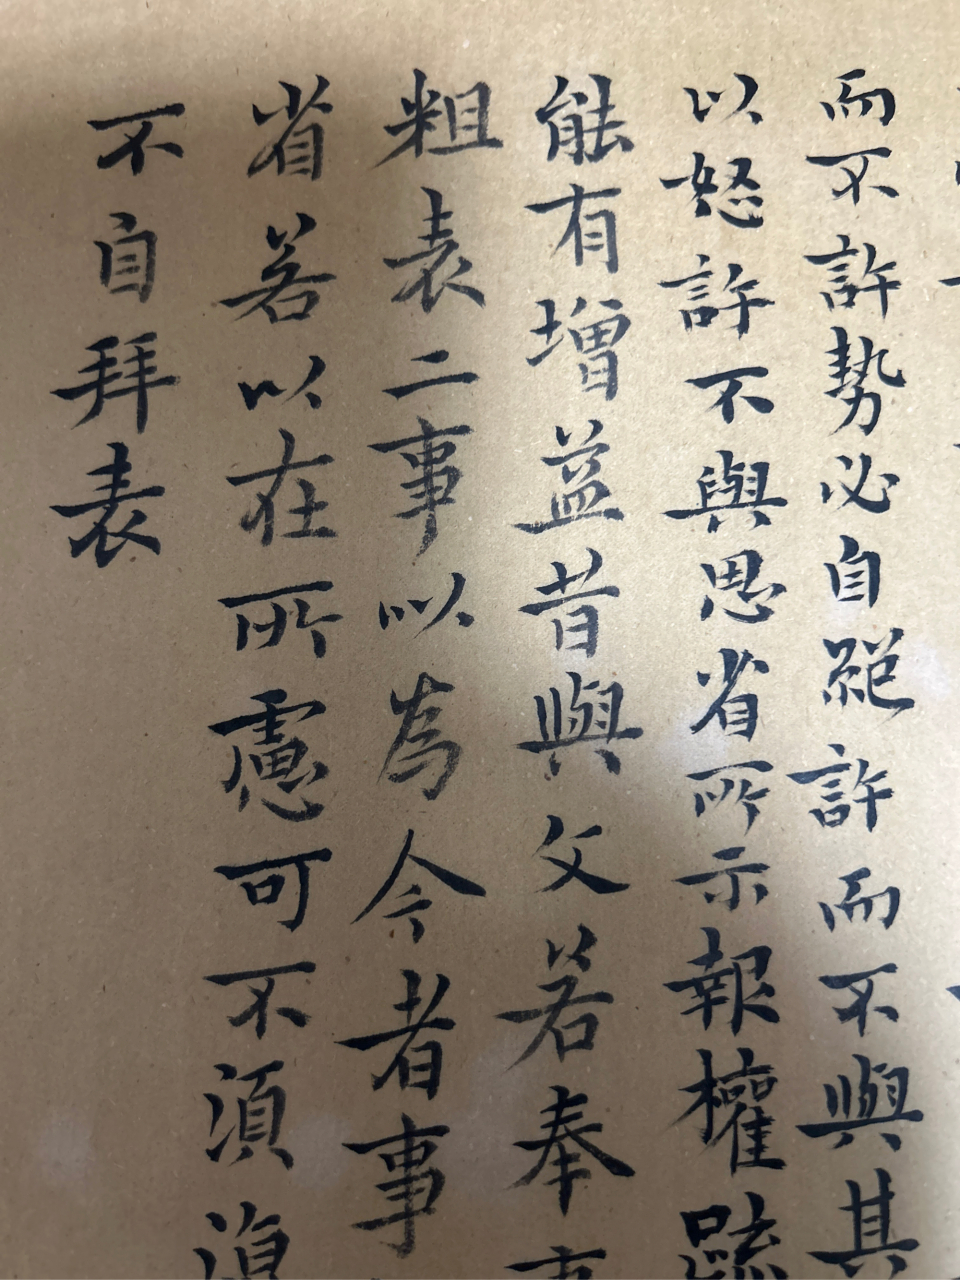 而不許勢必自絕許而不與其
以怒許不與思省所示報權疏
能有增益昔與父若奉
粗表二事以為今者事
省若以在所慮可不須
不自拜表